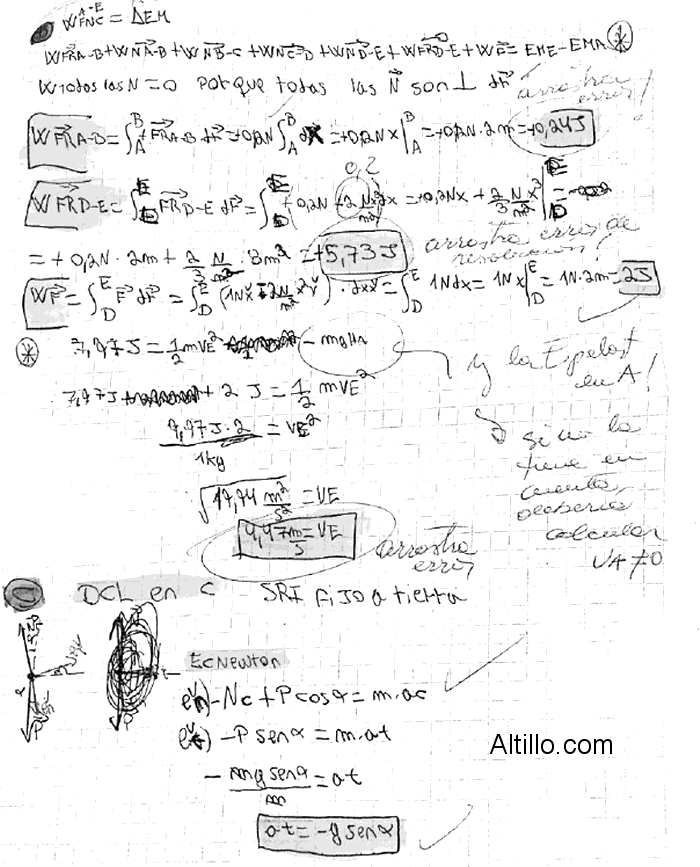 A-E
WFNC = ΔEM
WFRA-B + WNA-B + WNB-C + WNC-D + WND-E + WFRD-E + WF = EME - EMA (*)
W todas las N = 0 porque todas las N⃗ son ⊥ dr⃗
arrastra error!
WFRA-B = ∫_A^B FRA-B dr⃗ = +0,12N ∫_A^B dx = +0,12Nx|_A^B = +0,12N·2m = +0,24J
0,2
WFRD-E = ∫_D^E FRD-E dr⃗ = ∫_D^E +0,2N + 2 N/m² x² dx = +0,2Nx + 2/3 N/m² x³|_D^E =
= +0,2N·2m + 2/3 N/m² · 8m³ = +5,73J
arrastra error de resolución!
WF = ∫_D^E F⃗ dr⃗ = ∫_D^E (1N x̌ + 2N/m² x² y̌) · dx x̌ = ∫_D^E 1N dx = 1N x|_D^E = 1N·2m = 2J
(*) 7,97J = 1/2 mVE² - mgHA
y la Epelast
en A!
7,97J + 2J = 1/2 mVE²
9,97J·2 / 1kg = VE²
si no la
tiene en
cuenta,
debería
calcular
VA ≠ 0
√19,94 m²/s² = VE
4,47 m/s = VE
arrastra
error
DCL en C SRI fijo a tierra
Ec Newton
en) - Nc + P cos α = m·ac
et) - P sen α = m·at
Altillo.com
- mg sen α / m = at
at = -g sen α